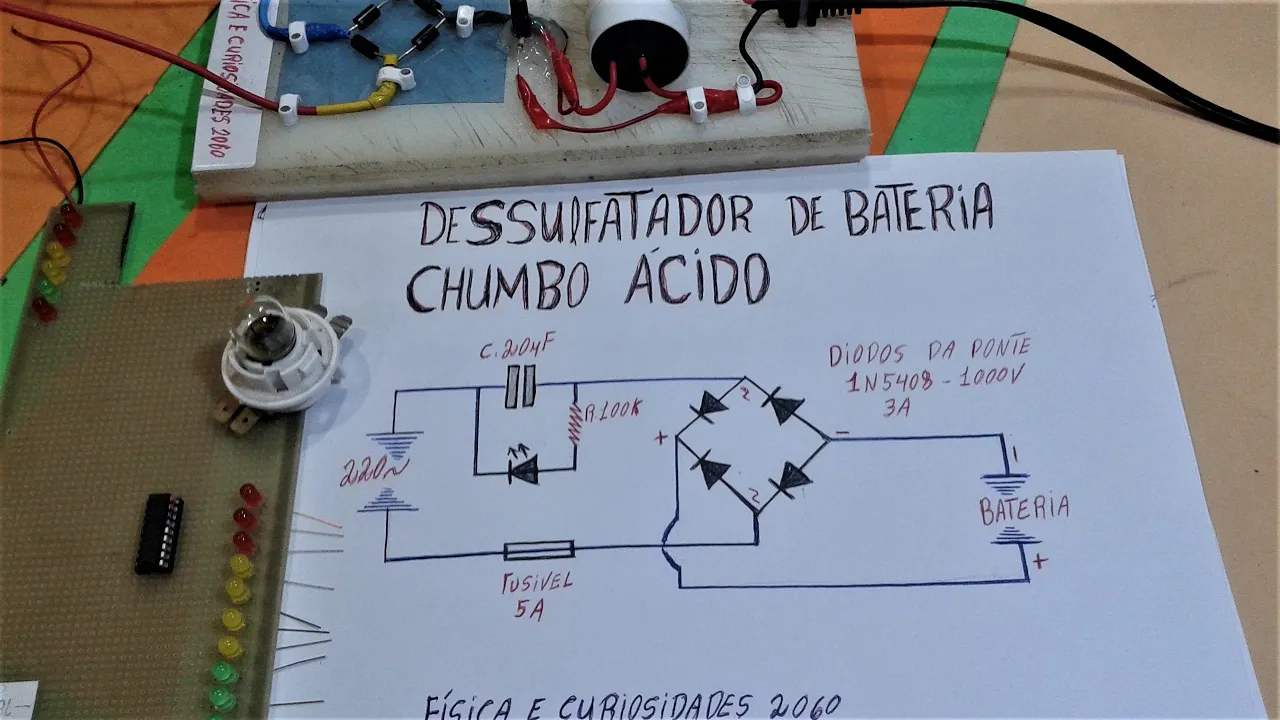 FÍSICA E CURIOSIDADES 2060
DESSULFATADOR DE BATERIA
CHUMBO ÁCIDO
C.20µF
R.100K
DIODOS DA PONTE
1N5408-1000V
3A
2
+
-
220~
2
BATERIA
+
FUSIVEL
5A
FÍSICA E CURIOSIDADES 2060